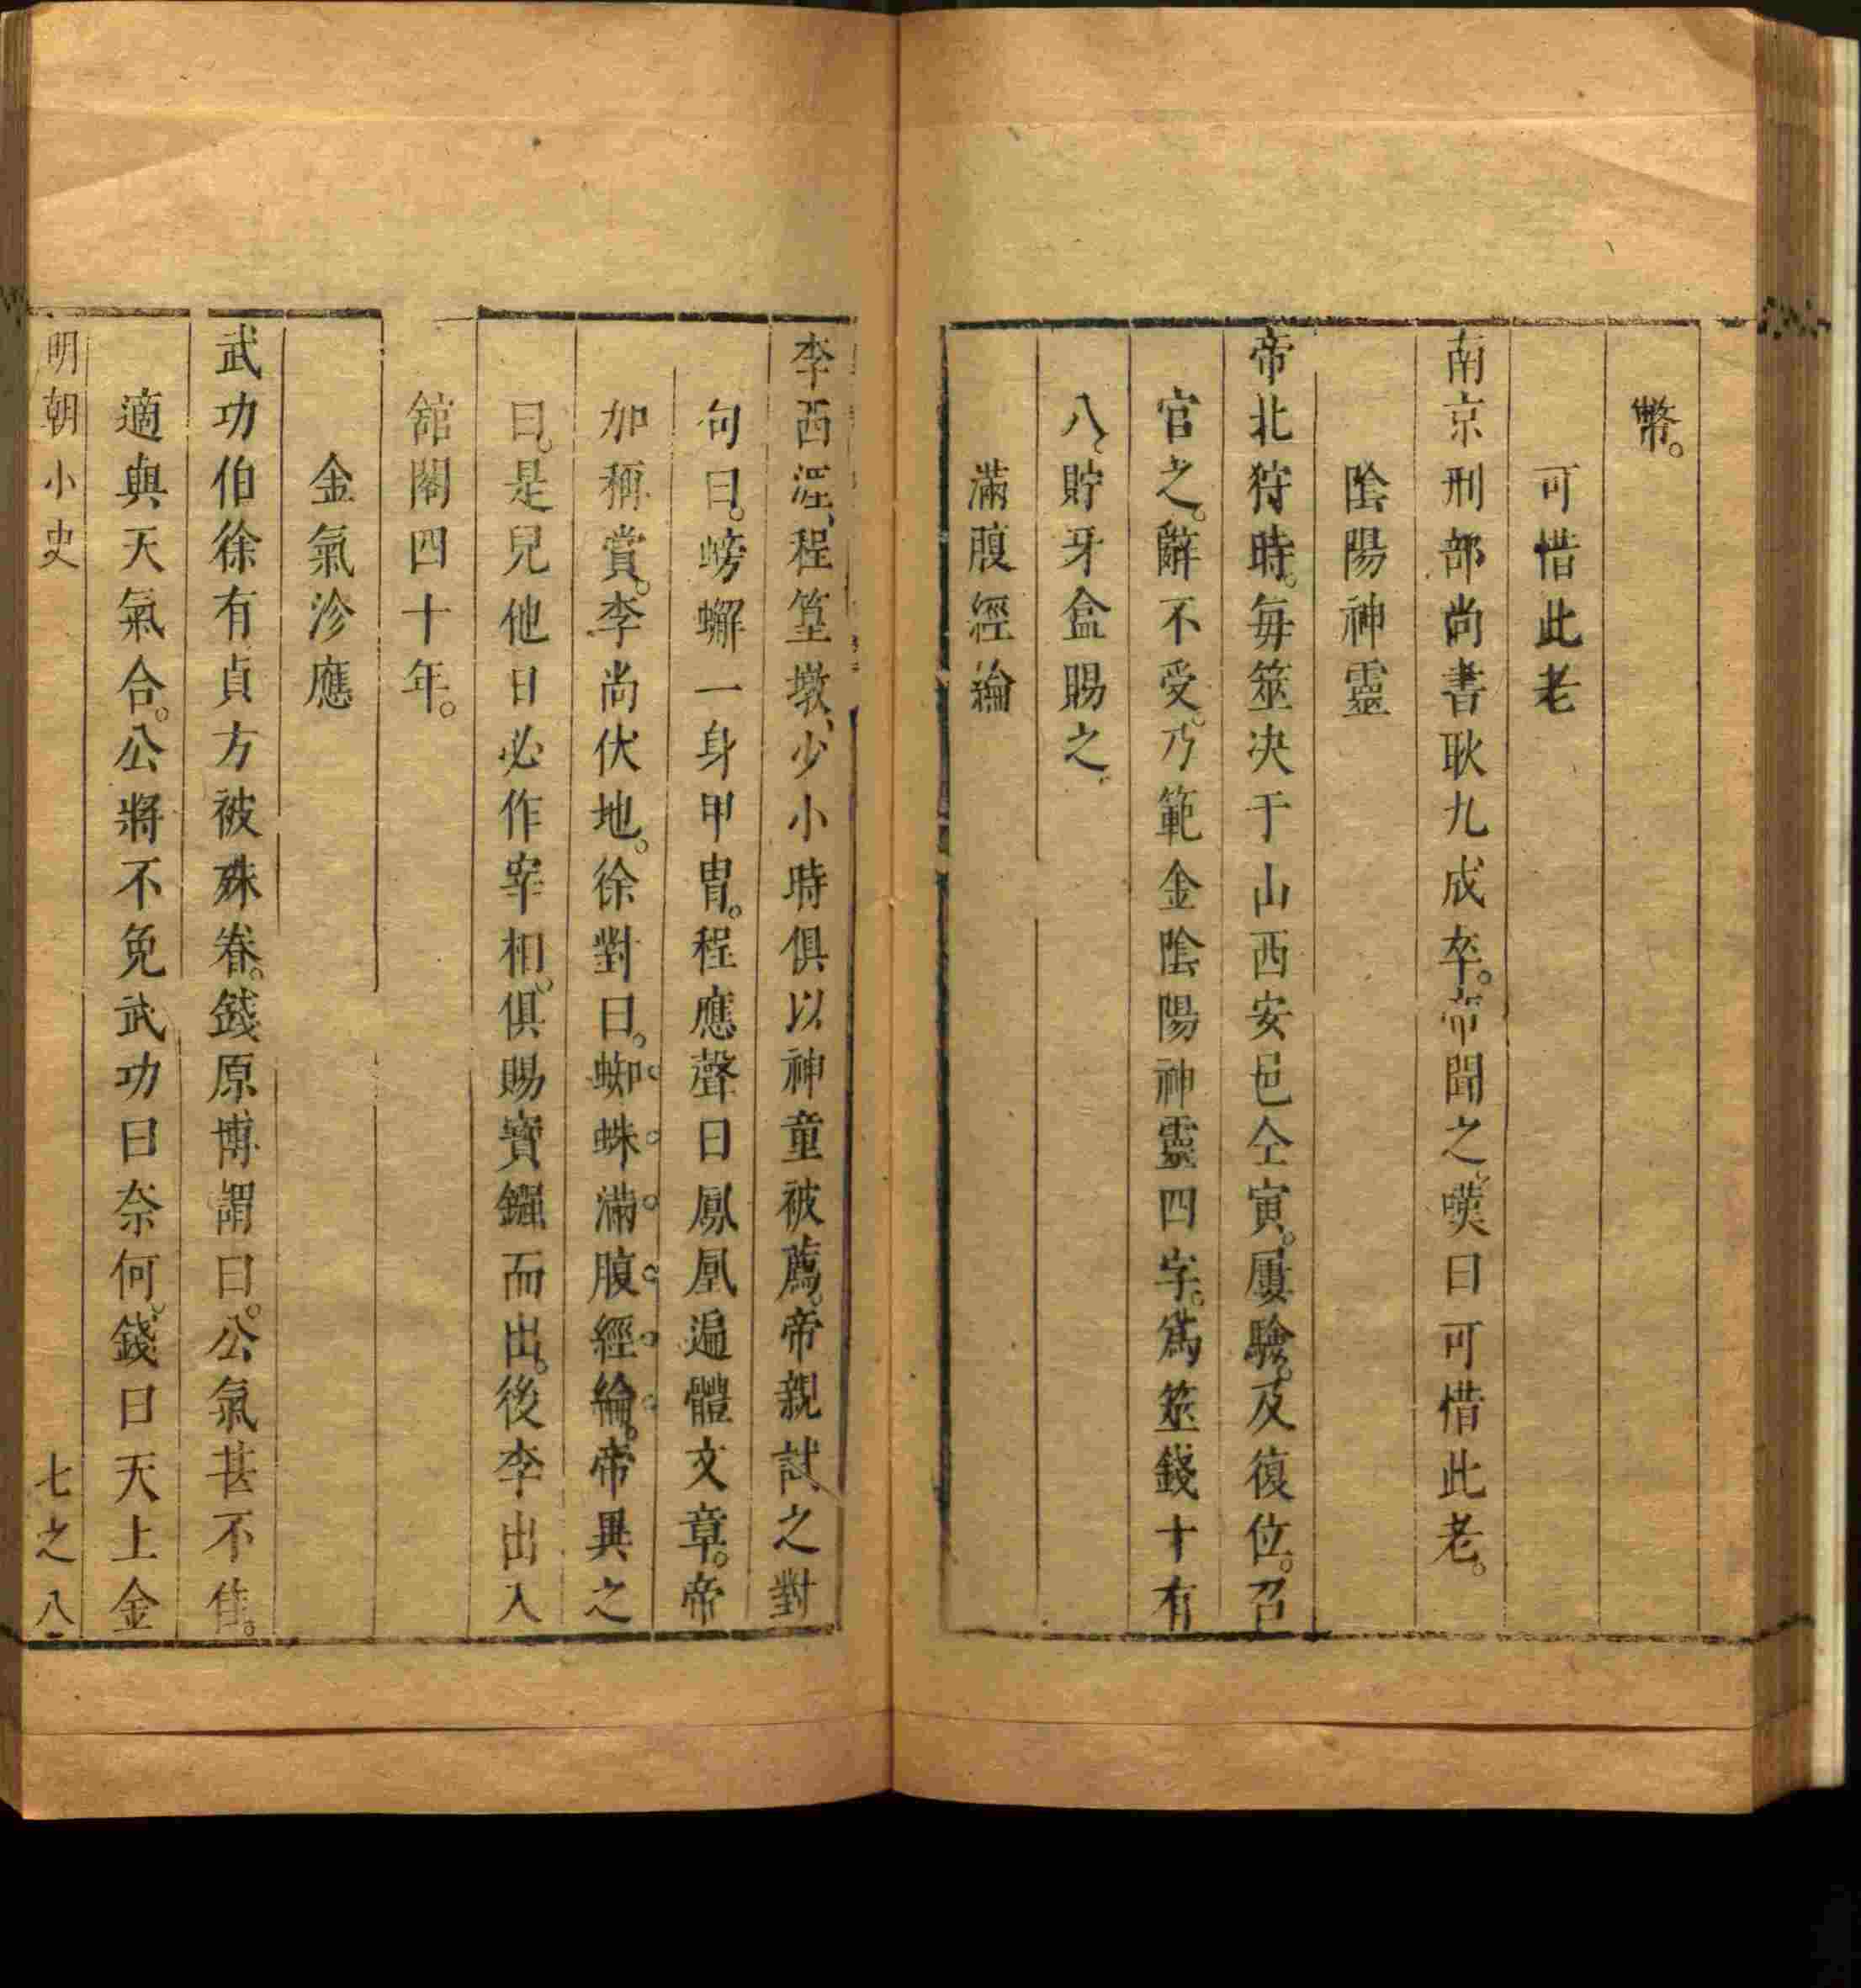 幣。
可惜此老
南京刑部尚書耿九成卒。帝聞之、嘆曰可惜此老。
陰陽神靈
帝北狩時。每筮决于山西安邑仝寅。屢驗。及復位。召
官之。辭不受。乃範金陰陽神靈四字。爲筮錢十有
八、貯牙盒賜之。
滿腹經綸
李西涯、程篁墩、少小時俱以神童被薦。帝親試之對
句曰。螃蠏一身甲冑。程應聲曰鳳凰遍體文章。帝
加稱賞。李尚伏地。徐對曰。蜘蛛滿腹經綸。帝異之
曰。是兒他日必作宰相。俱賜寳鏹而出。後李出入
舘閣四十年。
金氣沴應
武功伯徐有貞方被殊眷。錢原博謂曰。公氣甚不佳。
適與天氣合。公將不免武功曰奈何。錢曰天上金
明朝小史
七之八